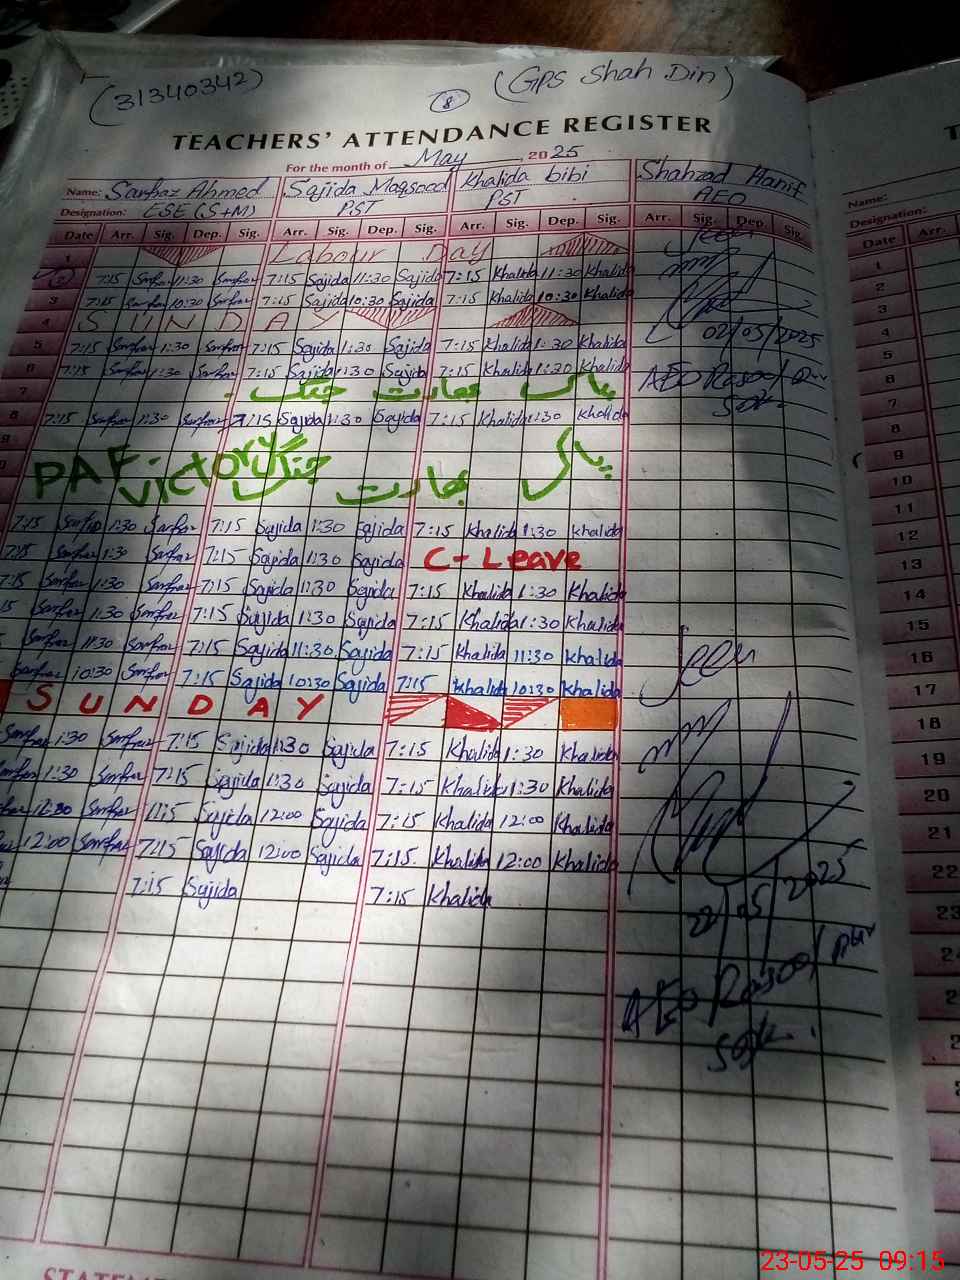 (31340342) 8 (GPS Shah Din)
TEACHERS' ATTENDANCE REGISTER
For the month of May, 2025
Name: Sarfraz Ahmed Sajida Maqsood Khalida bibi Shahzad Hanif
Designation: ESE (S+M) PST PST AEO
Date Arr. Sig. Dep. Sig. Arr. Sig. Dep. Sig. Arr. Sig. Dep. Sig. Arr. Sig. Dep. Sig.
1 Labour Day
2 7:15 Sarfraz 11:30 Sarfraz 7:15 Sajida 11:30 Sajida 7:15 Khalida 11:30 Khalida
3 7:15 Sarfraz 10:30 Sarfraz 7:15 Sajida 10:30 Sajida 7:15 Khalida 10:30 Khalida
4 SUNDAY
02/05/2025
5 7:15 Sarfraz 1:30 Sarfraz 7:15 Sajida 1:30 Sajida 7:15 Khalida 1:30 Khalida
6 7:15 Sarfraz 1:30 Sarfraz 7:15 Sajida 1:30 Sajida 7:15 Khalida 1:30 Khalida
AEO
7 پاک بھارت جنگ
8 7:15 Sarfraz 1:30 Sarfraz 7:15 Sajida 1:30 Sajida 7:15 Khalida 1:30 Khalida
9
PAF Victory پاک بھارت جنگ
7:15 Sarfraz 1:30 Sarfraz 7:15 Sajida 1:30 Sajida 7:15 Khalida 1:30 Khalida
7:15 Sarfraz 1:30 Sarfraz 7:15 Sajida 1:30 Sajida C- Leave
7:15 Sarfraz 1:30 Sarfraz 7:15 Sajida 1:30 Sajida 7:15 Khalida 1:30 Khalida
15 Sarfraz 11:30 Sarfraz 7:15 Sajida 1:30 Sajida 7:15 Khalida 1:30 Khalida
Sarfraz 11:30 Sarfraz 7:15 Sajida 11:30 Sajida 7:15 Khalida 11:30 Khalida
Sarfraz 10:30 Sarfraz 7:15 Sajida 10:30 Sajida 7:15 Khalida 10:30 Khalida
SUNDAY
Sarfraz 1:30 Sarfraz 7:15 Sajida 1:30 Sajida 7:15 Khalida 1:30 Khalida
1:30 Sarfraz 7:15 Sajida 1:30 Sajida 7:15 Khalida 1:30 Khalida
Sarfraz Sajida 12:00 Sajida 7:15 Khalida 12:00 Khalida
12:00 Sarfraz 7:15 Sajida 12:00 Sajida 7:15 Khalida 12:00 Khalida
7:15 Sajida 7:15 Khalida
22/05/2025
AEO
Name:
Designation:
Date Arr.
1
2
3
4
5
6
7
8
9
10
11
12
13
14
15
16
17
18
19
20
21
22
23
23-05-25 09:15